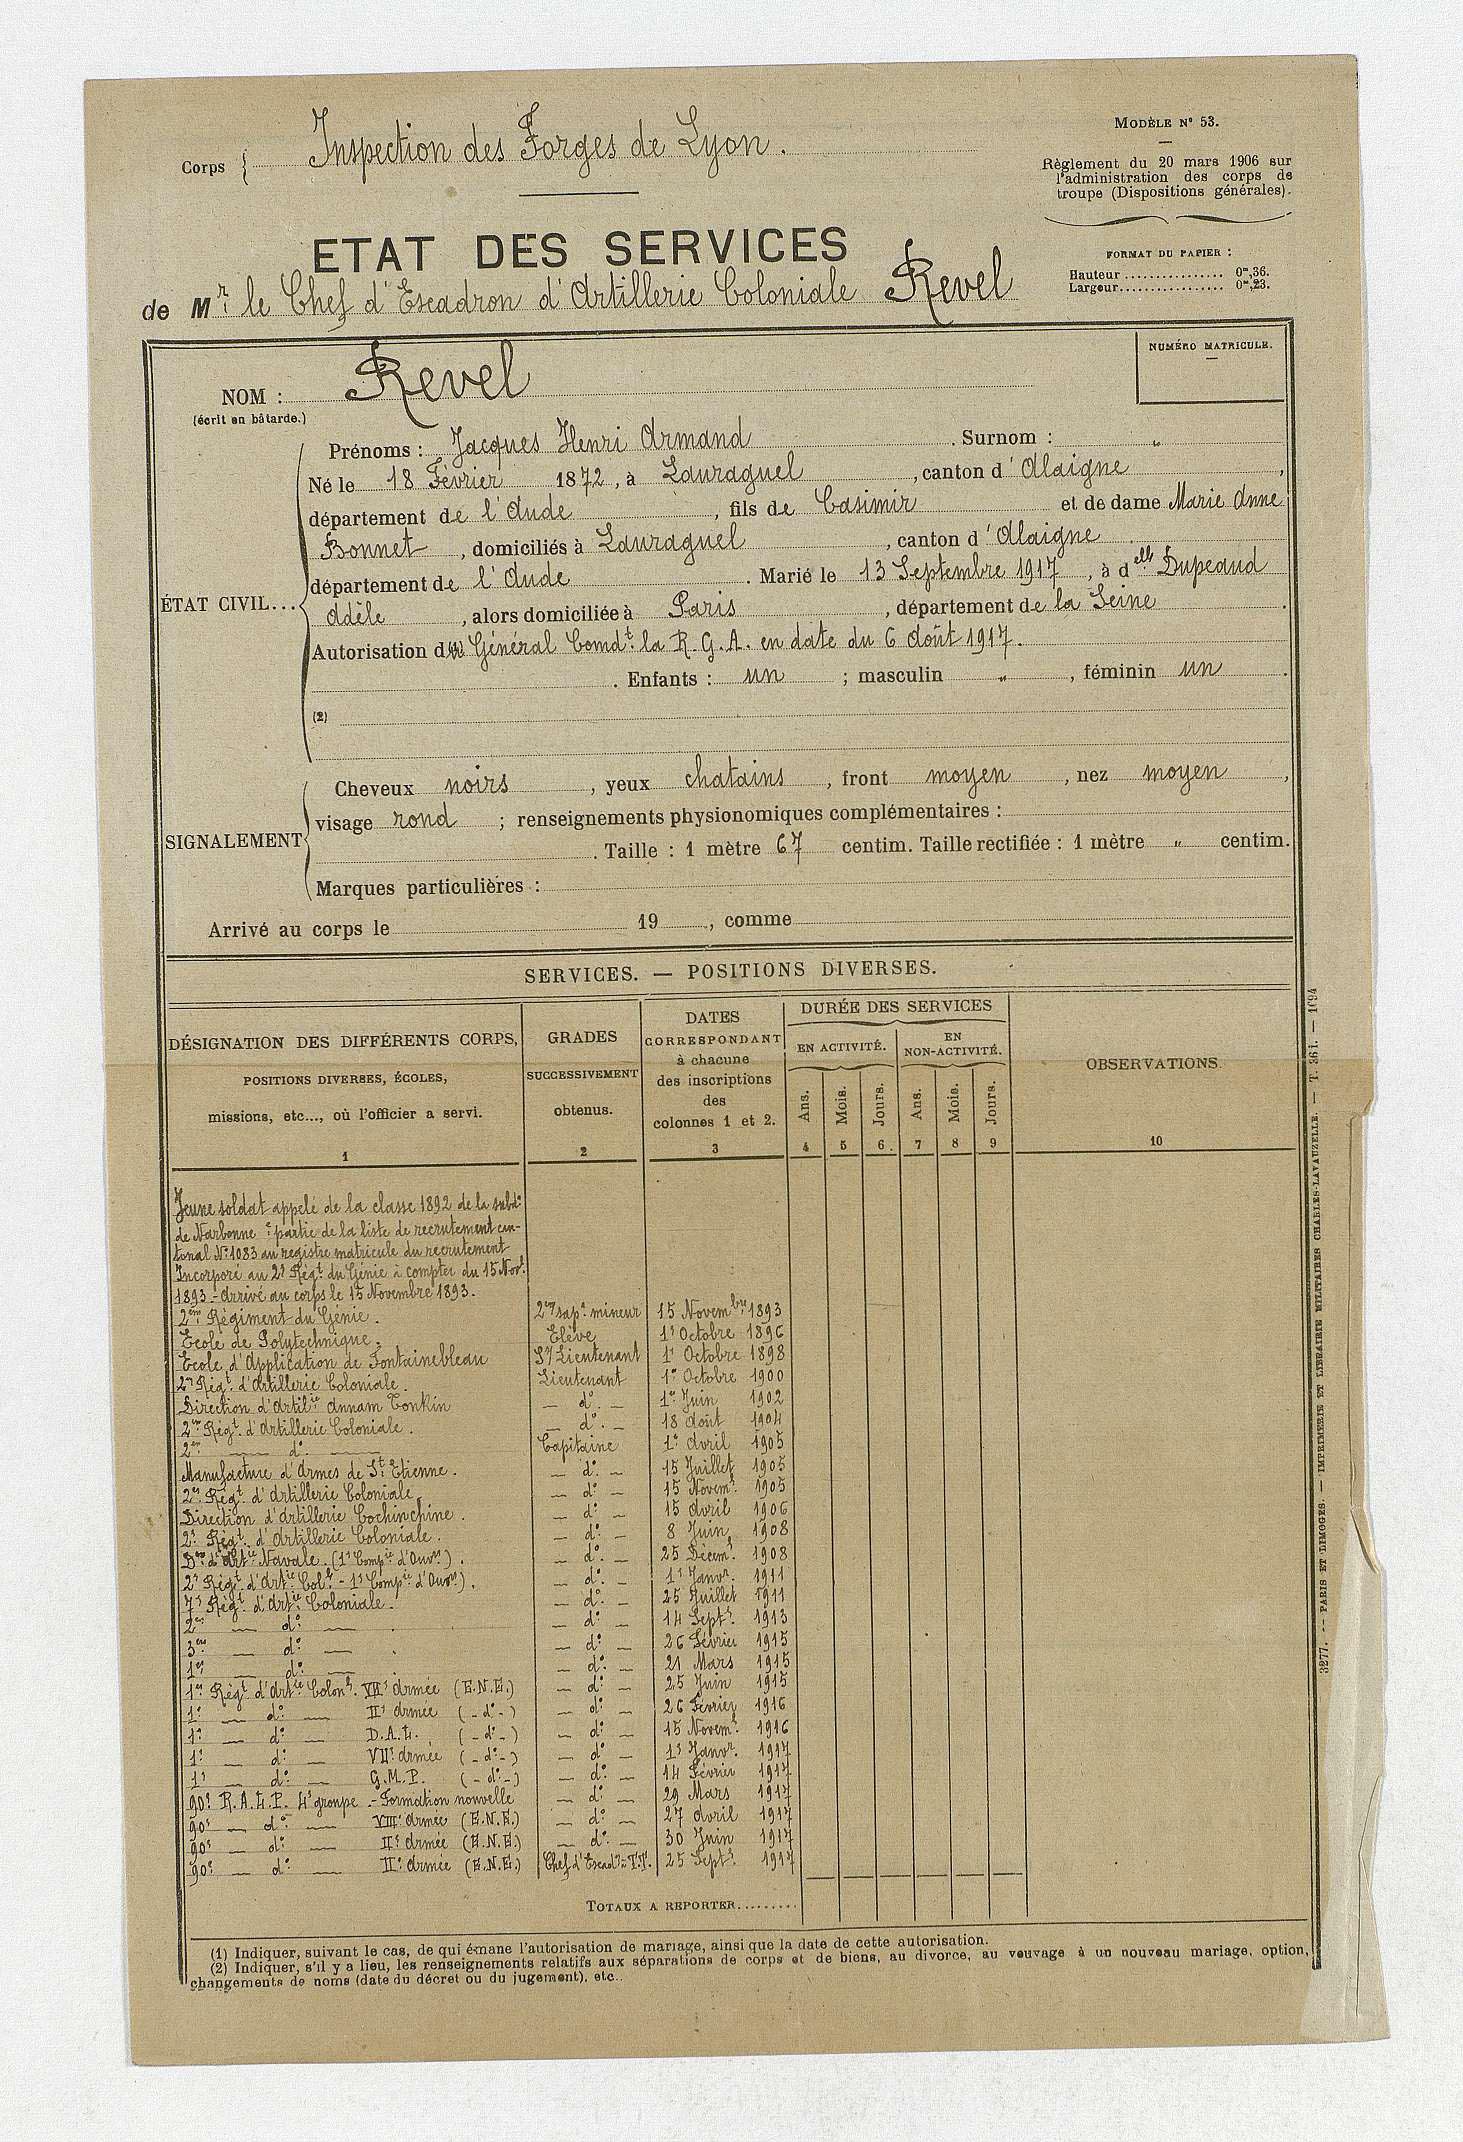 Modèle N° 53.
Corps { Inspection des Forges de Lyon.
Règlement du 20 mars 1906 sur
l'administration des corps de
troupe (Dispositions générales).
ETAT DES SERVICES
FORMAT DU PAPIER :
Hauteur ............... 0m,36.
Largeur................ 0m,23.
de Mr. le Chef d'Escadron d'Artillerie Coloniale Revel
NUMÉRO MATRICULE.
NOM : Revel
(écrit en bâtarde.)
Prénoms : Jacques Henri Armand . Surnom : "
Né le 18 Février 1872, à Lauraguel , canton d'Alaigne ,
département de l'Aude , fils de Casimir et de dame Marie Anne
Bonnet , domiciliés à Lauraguel , canton d'Alaigne
département de l'Aude . Marié le 13 Septembre 1917 , à delle Dupeaud
ÉTAT CIVIL...
Adèle , alors domiciliée à Paris , département de la Seine .
Autorisation du Général Comdt. la R.G.A. en date du 6 Août 1917.
. Enfants : un ; masculin " , féminin un .
(2)
Cheveux noirs , yeux chatains , front moyen , nez moyen ,
visage rond ; renseignements physionomiques complémentaires :
SIGNALEMENT
. Taille : 1 mètre 67 centim. Taille rectifiée : 1 mètre " centim.
Marques particulières :
Arrivé au corps le 19 , comme
SERVICES. — POSITIONS DIVERSES.
DÉSIGNATION DES DIFFÉRENTS CORPS,
POSITIONS DIVERSES, ÉCOLES,
missions, etc..., où l'officier a servi.
1
GRADES
SUCCESSIVEMENT
obtenus.
2
DATES
CORRESPONDANT
à chacune
des inscriptions
des
colonnes 1 et 2.
3
DURÉE DES SERVICES
EN ACTIVITÉ.
EN
NON-ACTIVITÉ.
Ans. Mois. Jours. Ans. Mois. Jours.
4 5 6. 7 8 9
OBSERVATIONS.
10
Jeune soldat appelé de la classe 1892 de la subdon
de Narbonne partie de la liste de recrutement can-
tonal N° 1083 au registre matricule du recrutement
Incorporé au 2e Régt. du Génie à compter du 15 Nove.
1893 - Arrivé au corps le 15 Novembre 1893.
2em Régiment du Génie. 2me sapr mineur 15 Novembre 1893
Ecole de Polytechnique. Elève 1er Octobre 1896
Ecole d'Application de Fontainebleau Ss Lieutenant 1er Octobre 1898
2e Régt. d'Artillerie Coloniale. Lieutenant 1er Octobre 1900
Direction d'Artilie Annam Tonkin — do. — 1er Juin 1902
2me Régt. d'Artillerie Coloniale. — do. — 18 Août 1904
2me — do. — Capitaine 1er Avril 1905
Manufacture d'Armes de St. Etienne. — do. — 15 Juillet 1905
2e Régt. d'Artillerie Coloniale. — do. — 15 Novemb. 1905
Direction d'Artillerie Cochinchine. — do. — 15 Avril 1906
2e Régt. d'Artillerie Coloniale. — do. — 8 Juin 1908
Don d'Artie Navale. (1e Compie d'Ouvrs). — do. — 25 Décem. 1908
2e Régt. d'Artie Cole - 1e Compie d'Ouvrs). — do. — 1er Janvr. 1911
7e Régt. d'Artie Coloniale. — do. — 25 Juillet 1911
2me — do. — . — do. — 14 Septe. 1913
3me — do. — — do. — 26 Février 1915
1er — do. — . — do. — 21 Mars 1915
1er Régt. d'Artie Colone. VIIe Armée (E.N.E.) — do. — 25 Juin 1915
1e — do. — IIe Armée ( - do. - ) — do. — 26 Février 1916
1e — do. — D.A.L. ( - do. - ) — do. — 15 Novem. 1916
1e — do. — VIIe Armée ( - do. - ) — do. — 1er Janvr. 1917
1e — do. — G.M.P. ( - do. - ) — do. — 14 Février 1917
90e R.A.L.P. 4e groupe - Formation nouvelle — do. — 29 Mars 1917
90e — do. — VIIIe Armée (E.N.E.) — do. — 27 Avril 1917
90e — do. — IIe Armée (E.N.E.) — do. — 30 Juin 1917
90e — do. — IIe Armée (E.N.E.) Chef d'Escadon T.T. 25 Septe. 1917
Totaux a reporter.........
(1) Indiquer, suivant le cas, de qui émane l'autorisation de mariage, ainsi que la date de cette autorisation.
(2) Indiquer, s'il y a lieu, les renseignements relatifs aux séparations de corps et de biens, au divorce, au veuvage à un nouveau mariage, option,
changements de noms (date du décret ou du jugement), etc..
3277. — PARIS ET LIMOGES. — IMPRIMERIE ET LIBRAIRIE MILITAIRES CHARLES-LAVAUZELLE. — T. 361. — 1694